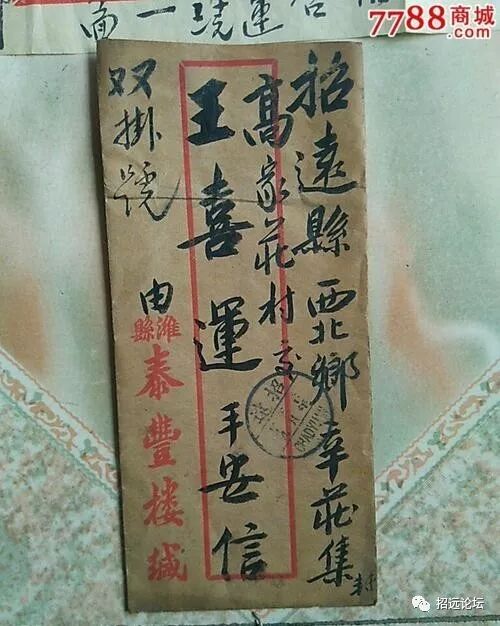 招遠縣西北鄉辛莊集
高家莊村交
王喜運平安信
双掛號
由
濰縣
泰豐樓緘
CHAOYUAN
7788商城
招远论坛